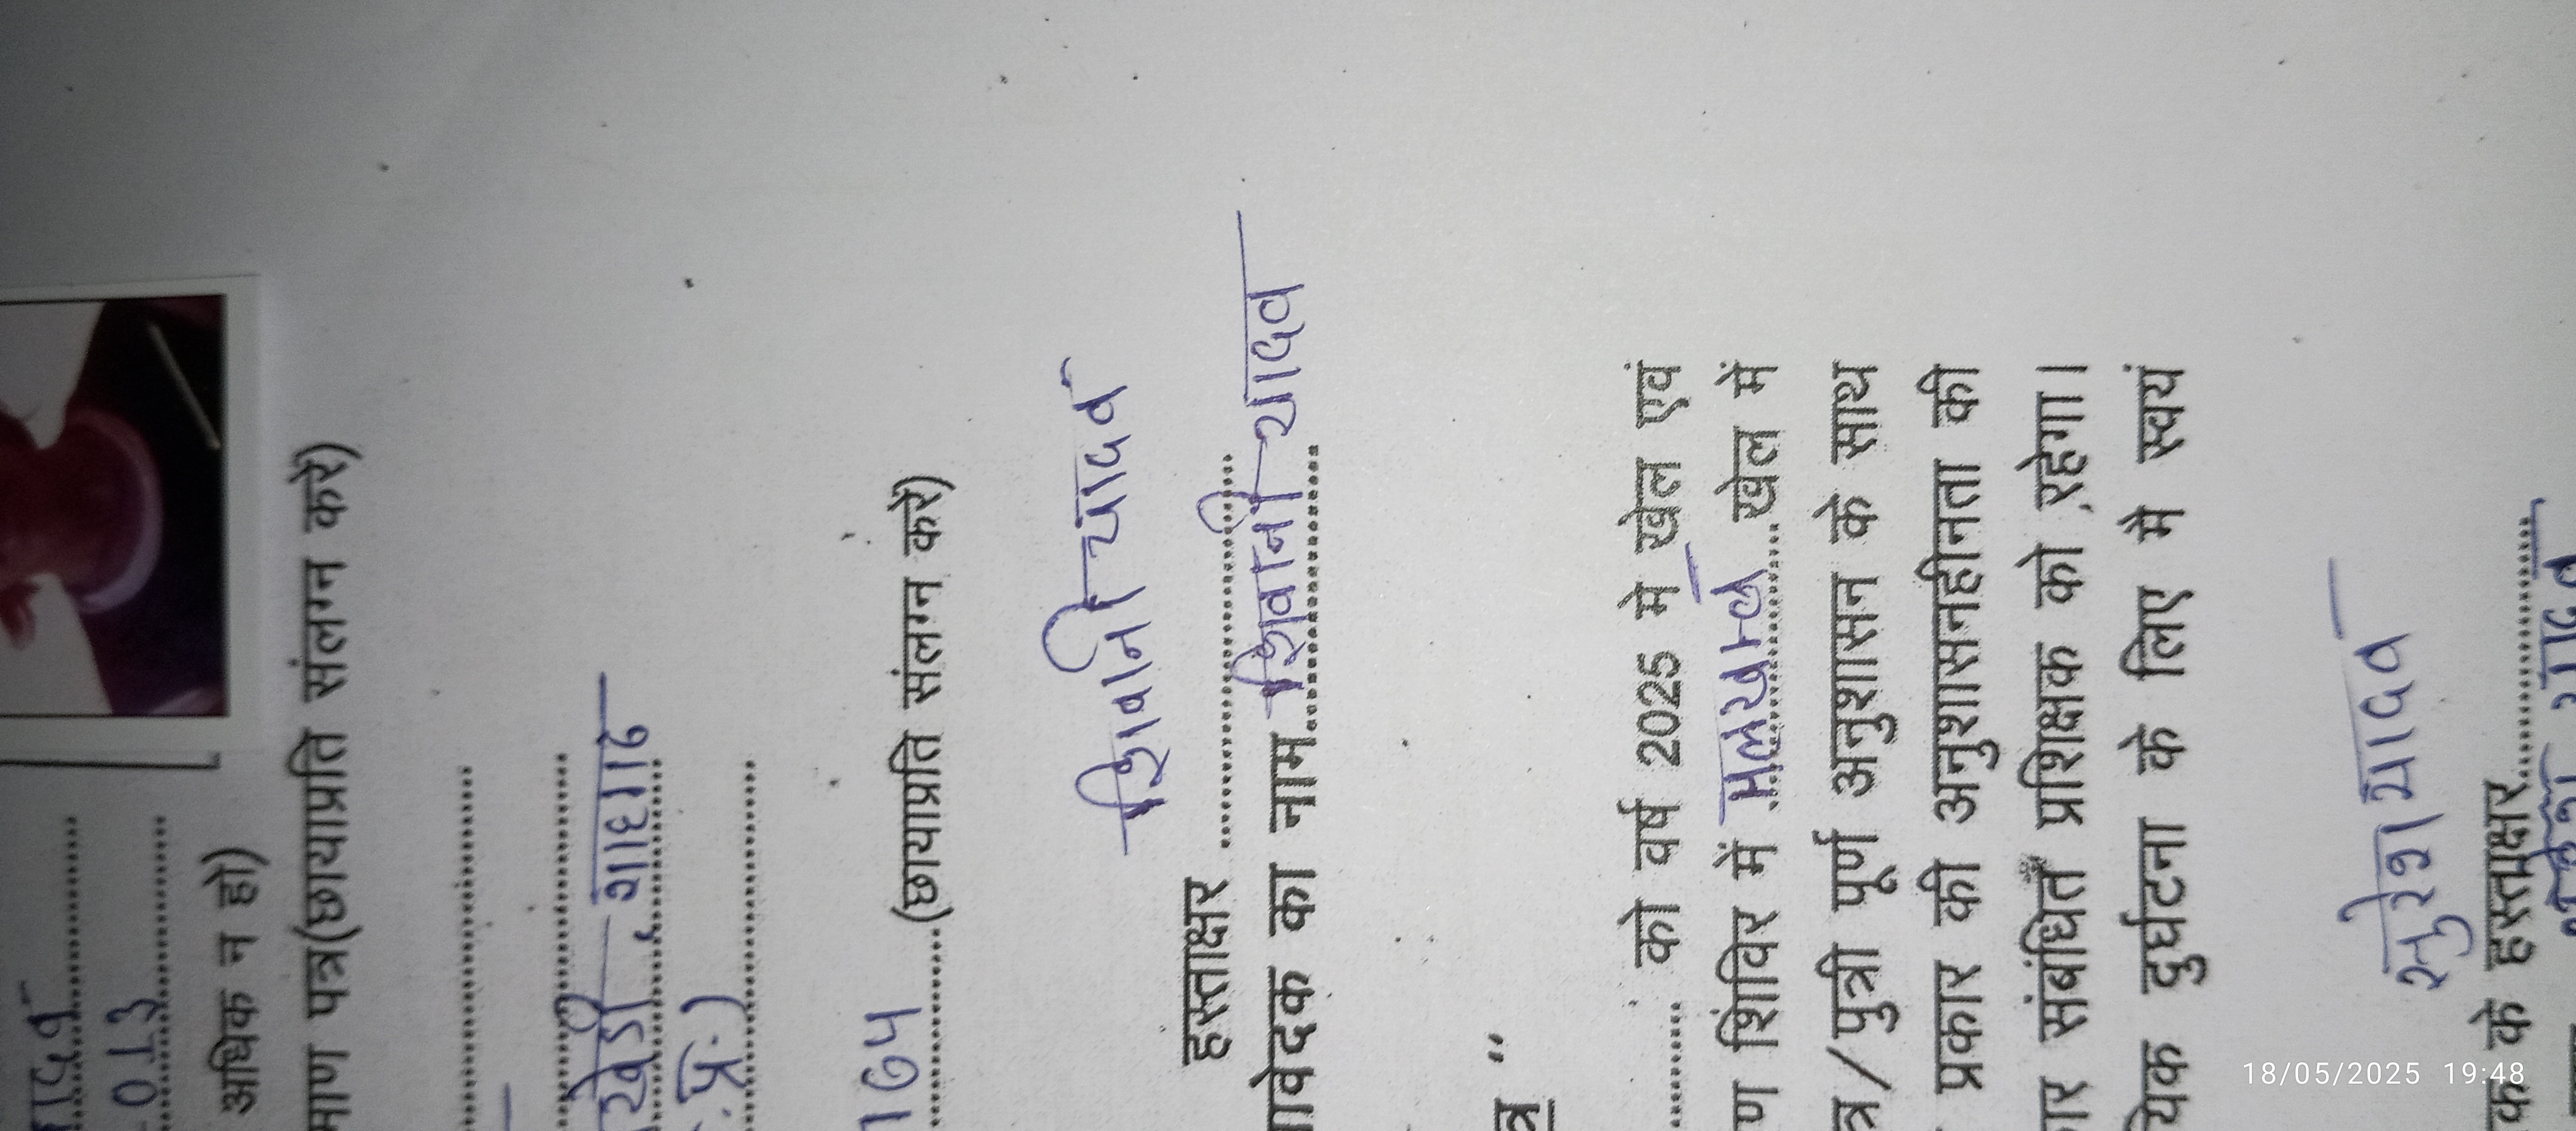 यादव
2013
अधिक न हो)
माण पत्र(छायाप्रति संलग्न करे)
, शाहगढ़
प्र.)
(छायाप्रति संलग्न करे)
शिवानी यादव
हस्ताक्षर
आवेदक का नाम शिवानी यादव
"
को वर्ष 2025 मे खेल एवं
ण शिविर में मलखम्ब खेल में
त्र/पुत्री पूर्ण अनुशासन के साथ
प्रकार की अनुशासनहीनता की
संबंधित प्रशिक्षक को रहेगा।
दुर्घटना के लिए मै स्वयं
सुरेश यादव
क के हस्ताक्षर
18/05/2025 19:48